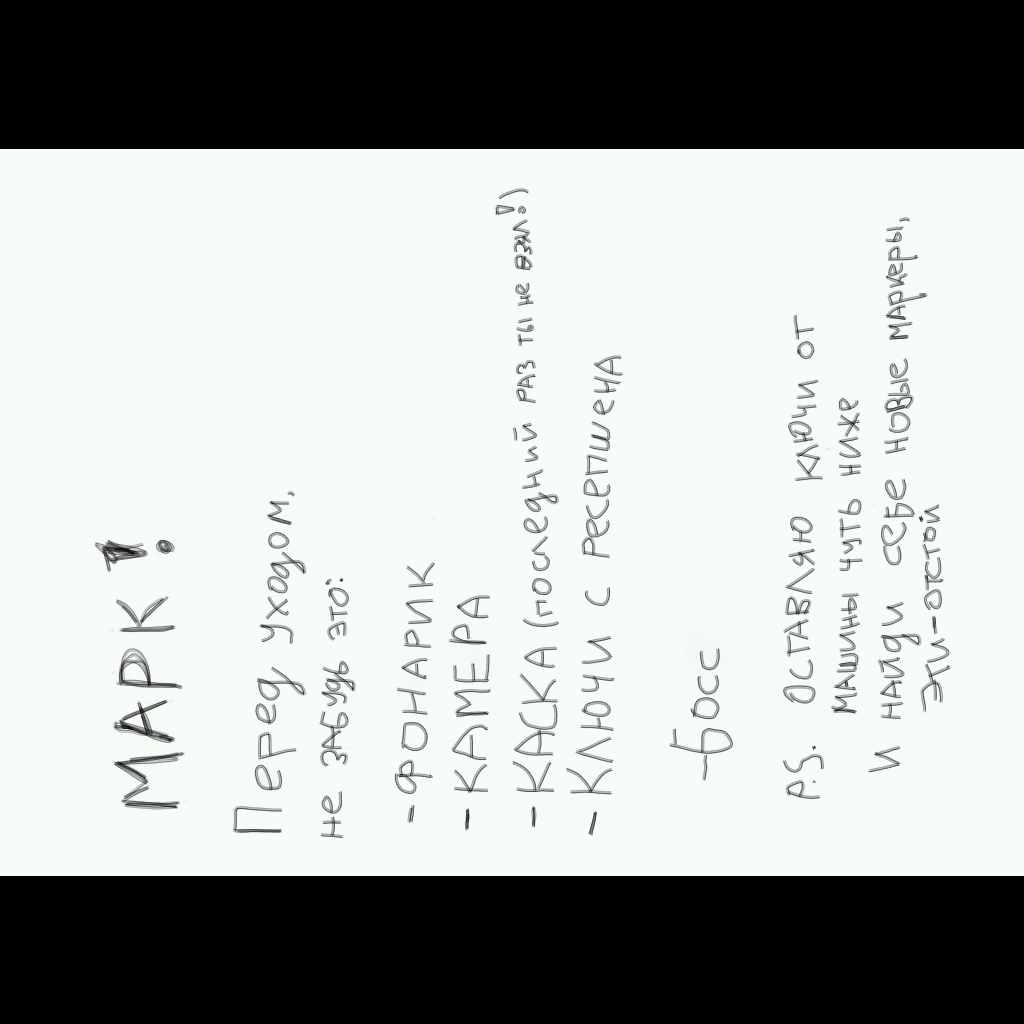 МАРК!
Перед уходом,
не забудь это:
- ФОНАРИК
- КАМЕРА
- КАСКА (последний раз ты не взял!)
- КЛЮЧИ С РЕСЕПШЕНА
- Босс
P.S. ОСТАВЛЯЮ КЛЮЧИ ОТ
МАШИНЫ ЧУТЬ НИЖЕ
И НАЙДИ СЕБЕ НОВЫЕ МАРКЕРЫ,
ЭТИ - ОТСТОЙ